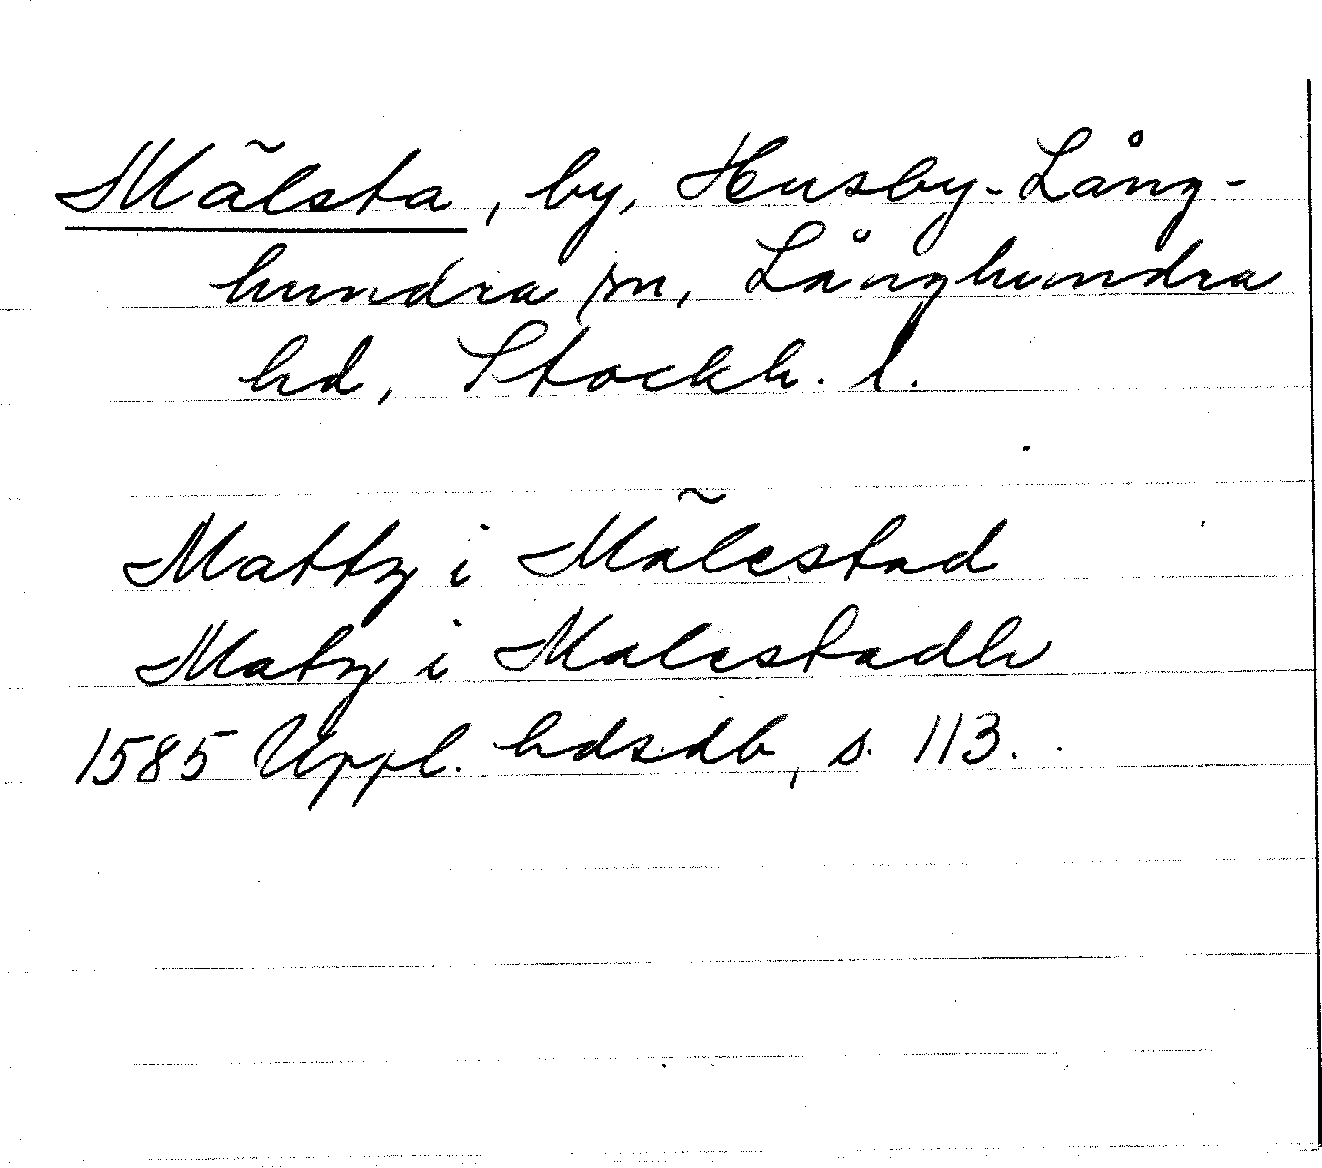 Mälsta, by, Husby-Lång-
hundra sn, Långhundra
hd, Stockh. l.
Mattz i Mälestad
Matz i Malestadh
1585 Uppl. hdsdb, s. 113.